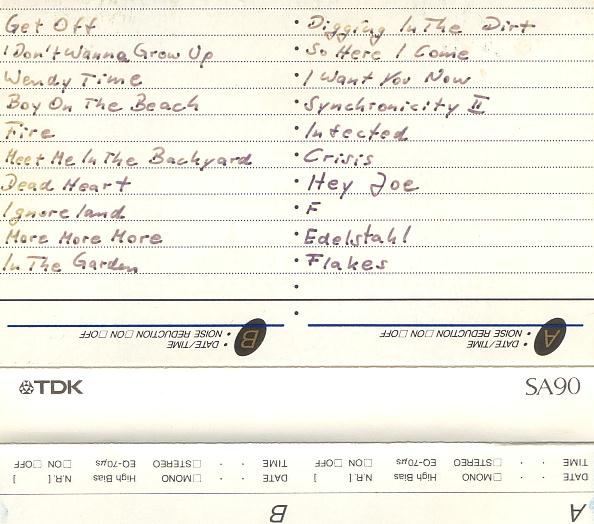 Get Off
I Don't Wanna Grow Up
Wendy Time
Boy On The Beach
Fire
Meet Me In The Backyard
Dead Heart
Ignoreland
More More More
In The Garden
• Digging In The Dirt
• So Here I Come
• I Want You Now
• Synchronicity II
• Infected
• Crisis
• Hey Joe
• F
• Edelstahl
• Flakes
B
• DATE/TIME
• NOISE REDUCTION □ON □OFF
A
• DATE/TIME
• NOISE REDUCTION □ON □OFF
TDK
SA90
A
DATE □MONO High Bias N.R. [ ]
TIME □STEREO EQ-70µs □ON □OFF
B
DATE □MONO High Bias N.R. [ ]
TIME □STEREO EQ-70µs □ON □OFF